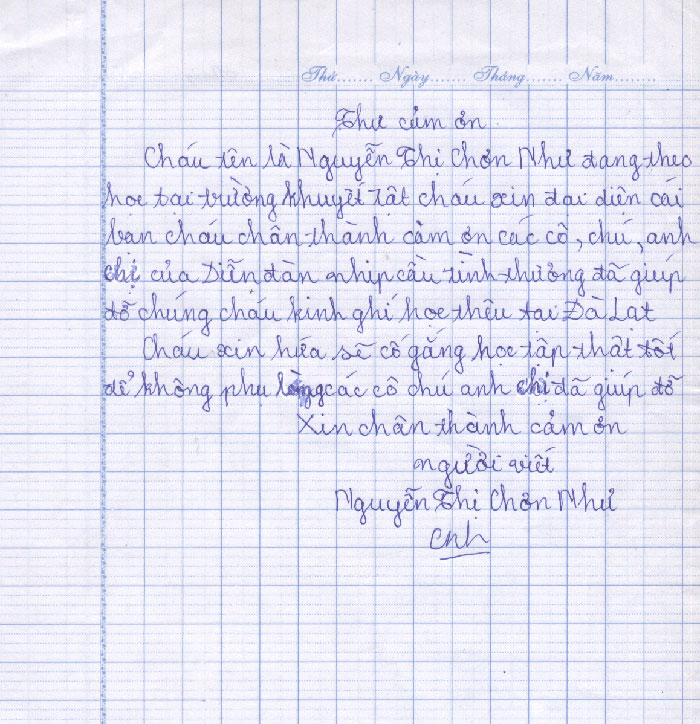 Thứ....... Ngày....... Tháng....... Năm........
Thư cảm ơn
Cháu tên là Nguyễn Thị Chơn Như đang theo
học tại trường khuyết tật cháu xin đại diện cái
bạn cháu chân thành cảm ơn các cô, chú, anh
chị của Diễn đàn nhịp cầu tình thương đã giúp
đỡ chúng cháu kinh ghí học thêu tại Đà Lạt
Cháu xin hứa sẽ cố gắng học tập thật tốt
để không phụ lòng các cô chú anh chị đã giúp đỡ
Xin chân thành cảm ơn
người viết
Nguyễn Thị Chơn Như
cnh